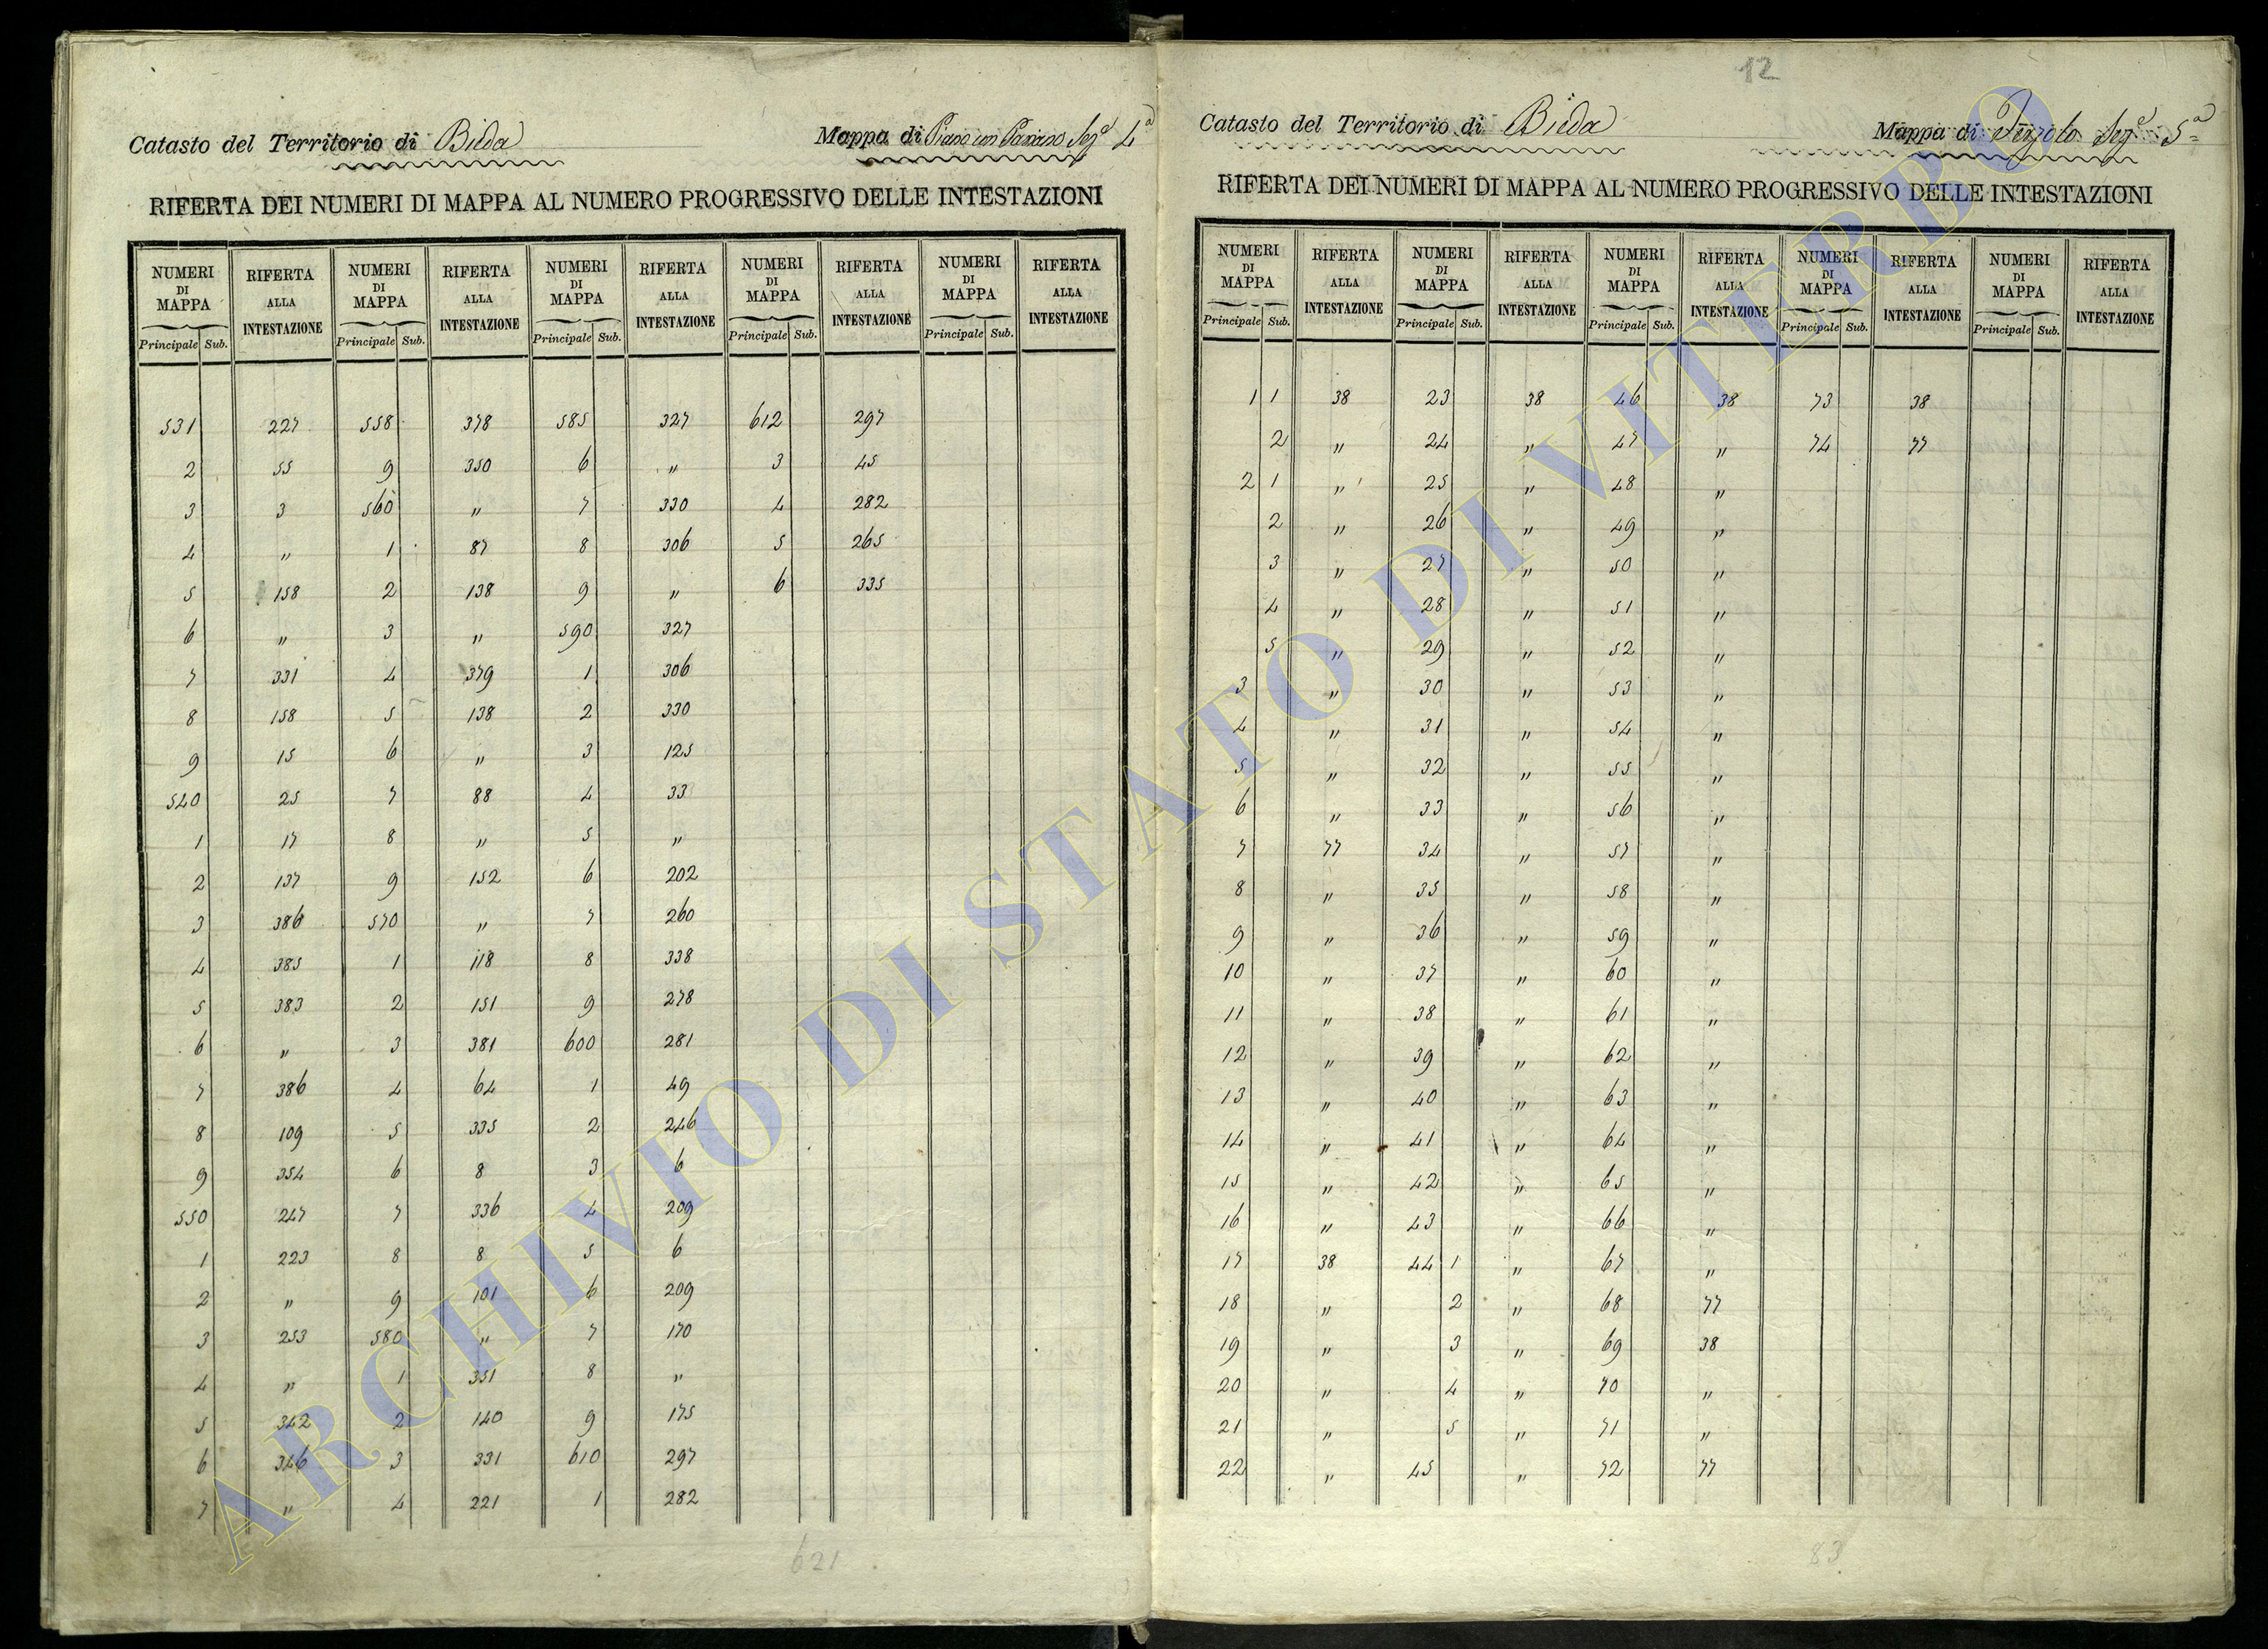 12
Catasto del Territorio di Bieda
Mappa di Piano con Seg.ª 4ª
RIFERTA DEI NUMERI DI MAPPA AL NUMERO PROGRESSIVO DELLE INTESTAZIONI
NUMERI DI MAPPA RIFERTA ALLA INTESTAZIONE NUMERI DI MAPPA RIFERTA ALLA INTESTAZIONE NUMERI DI MAPPA RIFERTA ALLA INTESTAZIONE NUMERI DI MAPPA RIFERTA ALLA INTESTAZIONE NUMERI DI MAPPA RIFERTA ALLA INTESTAZIONE
Principale Sub. Principale Sub. Principale Sub. Principale Sub. Principale Sub.
531 227 558 378 585 327 612 297
2 55 9 350 6 " 3 45
3 3 560 " 7 330 4 282
4 " 1 87 8 306 5 265
5 158 2 138 9 " 6 335
6 " 3 " 590 327
7 331 4 379 1 306
8 158 5 138 2 330
9 15 6 " 3 125
540 25 7 88 4 33
1 17 8 " 5 "
2 137 9 152 6 202
3 386 570 " 7 260
4 385 1 118 8 338
5 383 2 151 9 278
6 " 3 381 600 281
7 386 4 64 1 49
8 109 5 335 2 246
9 354 6 8 3 6
550 247 7 336 4 209
1 223 8 8 5 6
2 " 9 101 6 209
3 253 580 " 7 170
4 " 1 351 8 "
5 342 2 140 9 175
6 346 3 331 610 297
7 " 4 221 1 282
621
Catasto del Territorio di Bieda
Mappa di Seg.ª 5ª
RIFERTA DEI NUMERI DI MAPPA AL NUMERO PROGRESSIVO DELLE INTESTAZIONI
NUMERI DI MAPPA RIFERTA ALLA INTESTAZIONE NUMERI DI MAPPA RIFERTA ALLA INTESTAZIONE NUMERI DI MAPPA RIFERTA ALLA INTESTAZIONE NUMERI DI MAPPA RIFERTA ALLA INTESTAZIONE NUMERI DI MAPPA RIFERTA ALLA INTESTAZIONE
Principale Sub. Principale Sub. Principale Sub. Principale Sub. Principale Sub.
1 1 38 23 38 46 38 73 38
2 " 24 " 47 " 74 77
2 1 " 25 " 48 "
2 " 26 " 49 "
3 " 27 " 50 "
4 " 28 " 51 "
5 " 29 " 52 "
3 " 30 " 53 "
4 " 31 " 54 "
5 " 32 " 55 "
6 " 33 " 56 "
7 77 34 " 57 "
8 " 35 " 58 "
9 " 36 " 59 "
10 " 37 " 60 "
11 " 38 " 61 "
12 " 39 " 62 "
13 " 40 " 63 "
14 " 41 " 64 "
15 " 42 " 65 "
16 " 43 " 66 "
17 38 44 1 " 67 "
18 " 2 " 68 77
19 " 3 " 69 38
20 " 4 " 70 "
21 " 5 " 71 "
22 " 45 " 72 77
83
ARCHIVIO DI STATO DI VITERBO